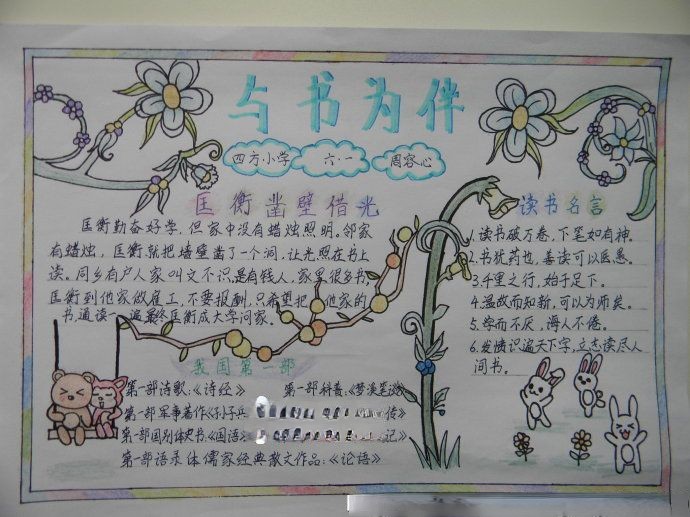 与书为伴
四方小学
六·一
周容心
匡衡凿壁借光
匡衡勤奋好学，但家中没有蜡烛照明。邻家
有蜡烛，匡衡就把墙壁凿了一个洞，让光照在书上
读。同乡有户人家叫文不识，是有钱人，家里很多书，
匡衡到他家做雇工，不要报酬，只希望把他家的
书，通读一遍，最终匡衡成大学问家。
读书名言
1.读书破万卷，下笔如有神。
2.书犹药也，善读可以医愚。
3.千里之行，始于足下。
4.温故而知新，可以为师矣。
5.学而不厌，诲人不倦。
6.发愤识遍天下字，立志读尽人
间书。
我国第一部
第一部诗歌：《诗经》
第一部科普：《梦溪笔谈》
第一部军事著作《孙子兵
传》
第一部国别体史书：《国语》
记》
第一部语录体儒家经典散文作品：《论语》